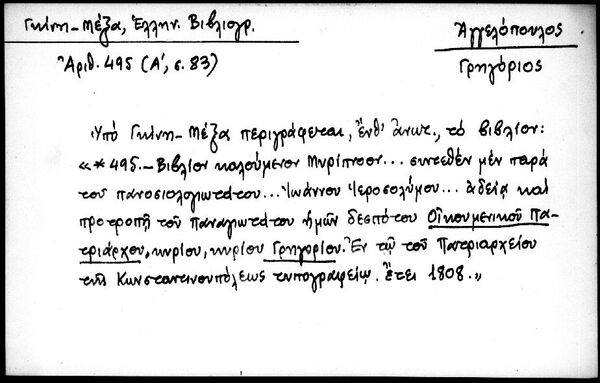 Γκίνη-Μέξα, Ἑλλην. Βιβλιογρ.
Ἀγγελόπουλος
Ἀριθ. 495 (Α΄, σ. 83)
Γρηγόριος
Ὑπό Γκίνη-Μέξα περιγράφεται, ἔνθ' ἀνωτ., τό βιβλίον:
«*495.-Βιβλίον καλούμενον Μυρίπνοον... συντεθέν μέν παρά
τοῦ πανοσιολογιωτάτου... Ἰωάννου Ἱεροσολύμου... ἀδείᾳ καί
προτροπῇ τοῦ παναγιωτάτου ἡμῶν δεσπότου Οἰκουμενικοῦ Πα-
τριάρχου, κυρίου, κυρίου Γρηγορίου. Ἐν τῷ τοῦ Πατριαρχείου
τῆς Κωνσταντινουπόλεως τυπογραφείῳ. Ἔτει 1808.»